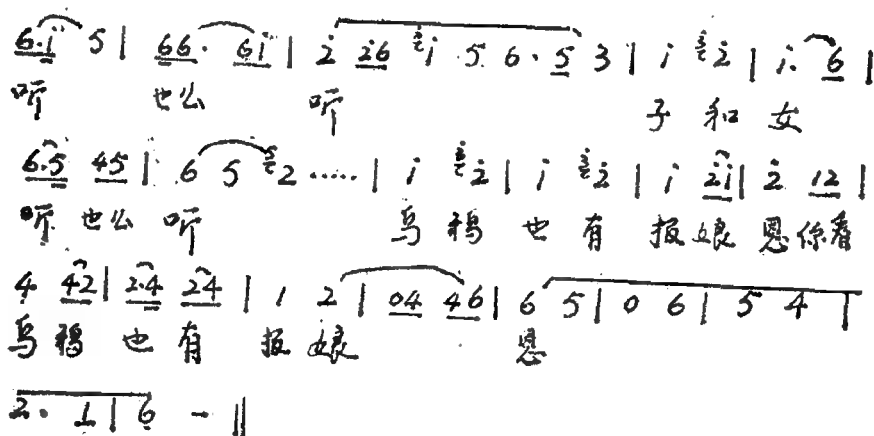 6·i 5 | 66· 6i | 2 26 i 5 6·5 3 | i 2 | i· 6 |
听 也么 听 子和女
6·5 45 | 6 5 2 ····· | i 2 | i 2 | i 2i | 2 12 |
听也么听 乌鸦也有报娘恩你看
4 42 | 2·4 24 | 1 2 | 04 46 | 6 5 | 0 6 | 5 4 |
乌鸦也有报娘 恩
2· 1 | 6 - ‖